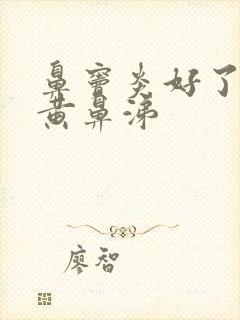 鼻窦炎好了
黄鼻涕
廖智